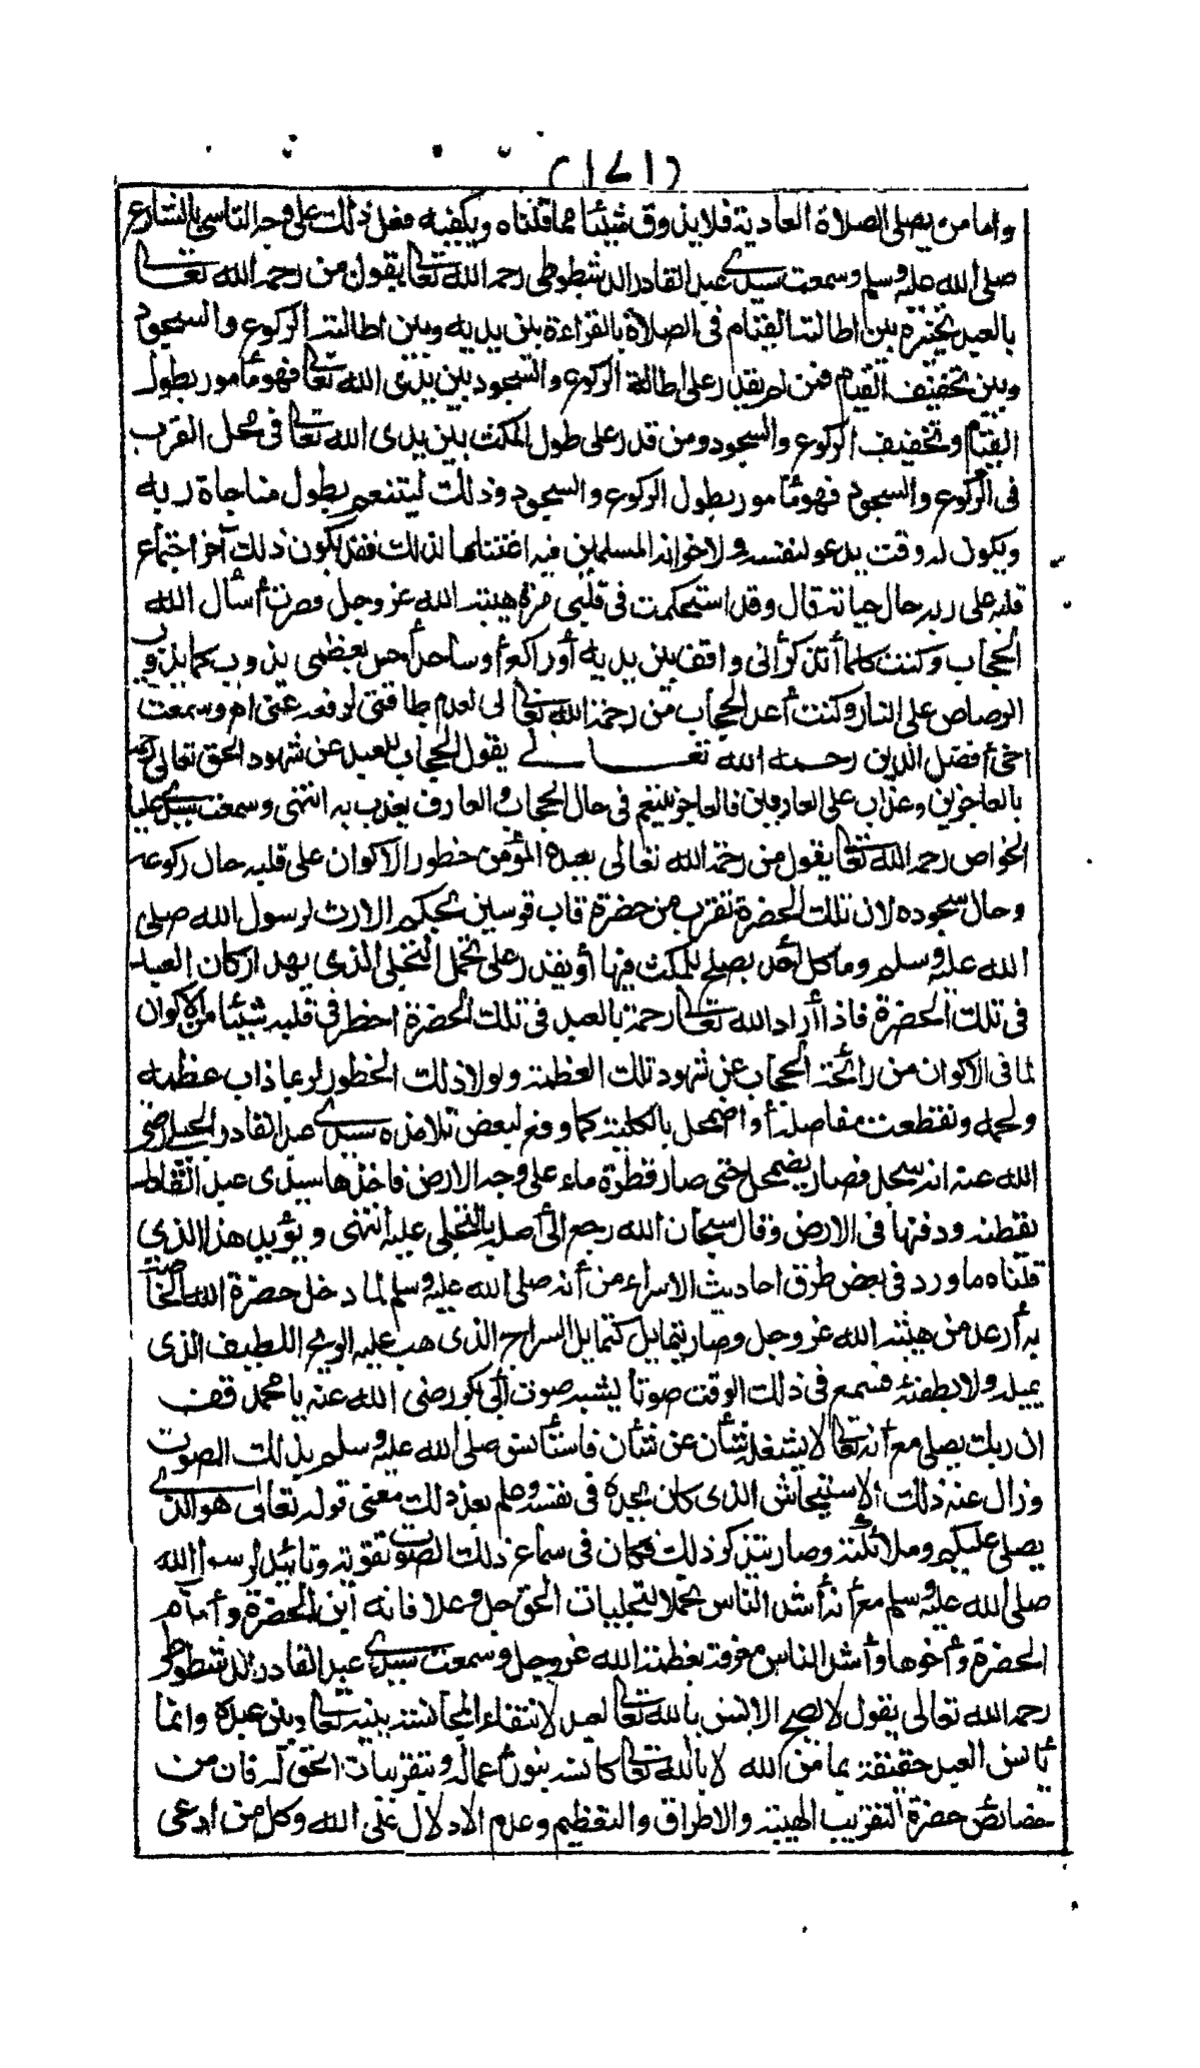 (١٧١)
واما من يصلى الصلاة العادية فلا يذوق شيئا مما قلناه ويكفيه فعل ذلك على وجه التاسى بالشارع
صلى الله عليه وسلم وسمعت سيدى عبد القادر الدشطوطى رحمه الله تعالى يقول من رحمه الله تعالى
بالعبد تخييره بين اطالت القيام فى الصلاة بالقراءة بين يديه وبين اطالت الركوع والسجود
وبين تخفيف القيام فمن لم يقدر على اطالة الركوع والسجود بين يدى الله تعالى فهو مأمور بطول
القيام وتخفيف الركوع والسجود ومن قدر على طول المكث بين يدى الله تعالى فى محل القرب
فى الركوع والسجود فهو مأمور بطول الركوع والسجود وذلك ليتنعم بطول مناجاة ربه
ويكون له وقت يدعو لنفسه ولاخوانه المسلمين فيه اغتناما لذلك فقد يكون ذلك آخر اجتماع
قلبه على ربه حال حياته قال وقد استحكمت فى قلبى مرة هيبة الله عز وجل وصرت أسأل الله
الحجاب وكنت كلما أتذكر أنى واقف بين يديه أو راكعا أو ساجدا أحس بعظمى يذوب كما يذوب
الرصاص على النار وكنت أعد الحجاب من رحمة الله تعالى لى لعدم طاقتى لرفعه عنى اه وسمعت
اخى أفضل الدين رحمه الله تعالى يقول الحجاب للعبد عن شهود الحق تعالى رحمة
بالعاجزين وعذاب على العارفين فالعاجز يتنعم فى حال الحجاب والعارف يعذب به انتهى وسمعت سيدى عليا
الخواص رحمه الله تعالى يقول من رحمة الله تعالى بعبده المؤمن خطور الاكوان على قلبه حال ركوعه
وحال سجوده لان تلك الحضرة تقرب من حضرة قاب قوسين بحكم الارث لرسول الله صلى
الله عليه وسلم وما كل أحد يصلح للمكث فيها أو يقدر على تحمل التجلى الذى يهد اركان العبد
فى تلك الحضرة فاذا أراد الله تعالى رحمة بالعبد فى تلك الحضرة اخطر فى قلبه شيئا من الاكوان
لما فى الاكوان من رائحة الحجاب عن شهود تلك العظمة ولولا ذلك الخطور لربما ذاب عظمه
ولحمه وتقطعت مفاصله أو اضمحل بالكلية كما وقع لبعض تلامذه سيدى عبد القادر الجيلى رضى
الله عنه انه سجد فصار يضمحل حتى صار قطرة ماء على وجه الارض فاخذها سيدى عبد القادر
بقطنه ودفنها فى الارض وقال سبحان الله رجع الى أصله بالتجلى عليه انتهى ويؤيد هذا الذى
قلناه ما ورد فى بعض طرق احاديث الاسراء من أنه صلى الله عليه وسلم لما دخل حضرة الله الخاصة
به أرعد من هيبة الله عز وجل وصار يتمايل كتمايل السراج الذى هب عليه الريح اللطيف الذى
يميله ولا يطفئه فسمع فى ذلك الوقت صوتا يشبه صوت أبى بكر رضى الله عنه يا محمد قف
ان ربك يصلى مع أنه تعالى لا يشغله شأن عن شأن فاستأنس صلى الله عليه وسلم بذلك الصوت
وزال عنه ذلك الاستيحاش الذى كان يجده فى نفسه وعلم بعد ذلك معنى قوله تعالى هو الذى
يصلى عليكم وملائكته وصار يتذكر ذلك فكان فى سماع ذلك الصوت تقوية وتائيد لرسول الله
صلى الله عليه وسلم مع أنه أشد الناس تحملا لتجليات الحق جل وعلا فانه ابن الحضرة وأمام
الحضرة وأخوها وأشد الناس معرفة بعظمة الله عز وجل وسمعت سيدى عبد القادر الدشطوطى
رحمه الله تعالى يقول لا يصح الانس بالله تعالى لعبد لانتفاء المجانسة بينه تعالى وبين عبده وانما
يأنس العبد حقيقة بما من الله لا بالله تعالى كأنسه بنور أعماله وتقريبات الحق له فان من
خصائص حضرة التقريب الهيبة والاطراق والتعظيم وعدم الادلال على الله وكل من ادعى